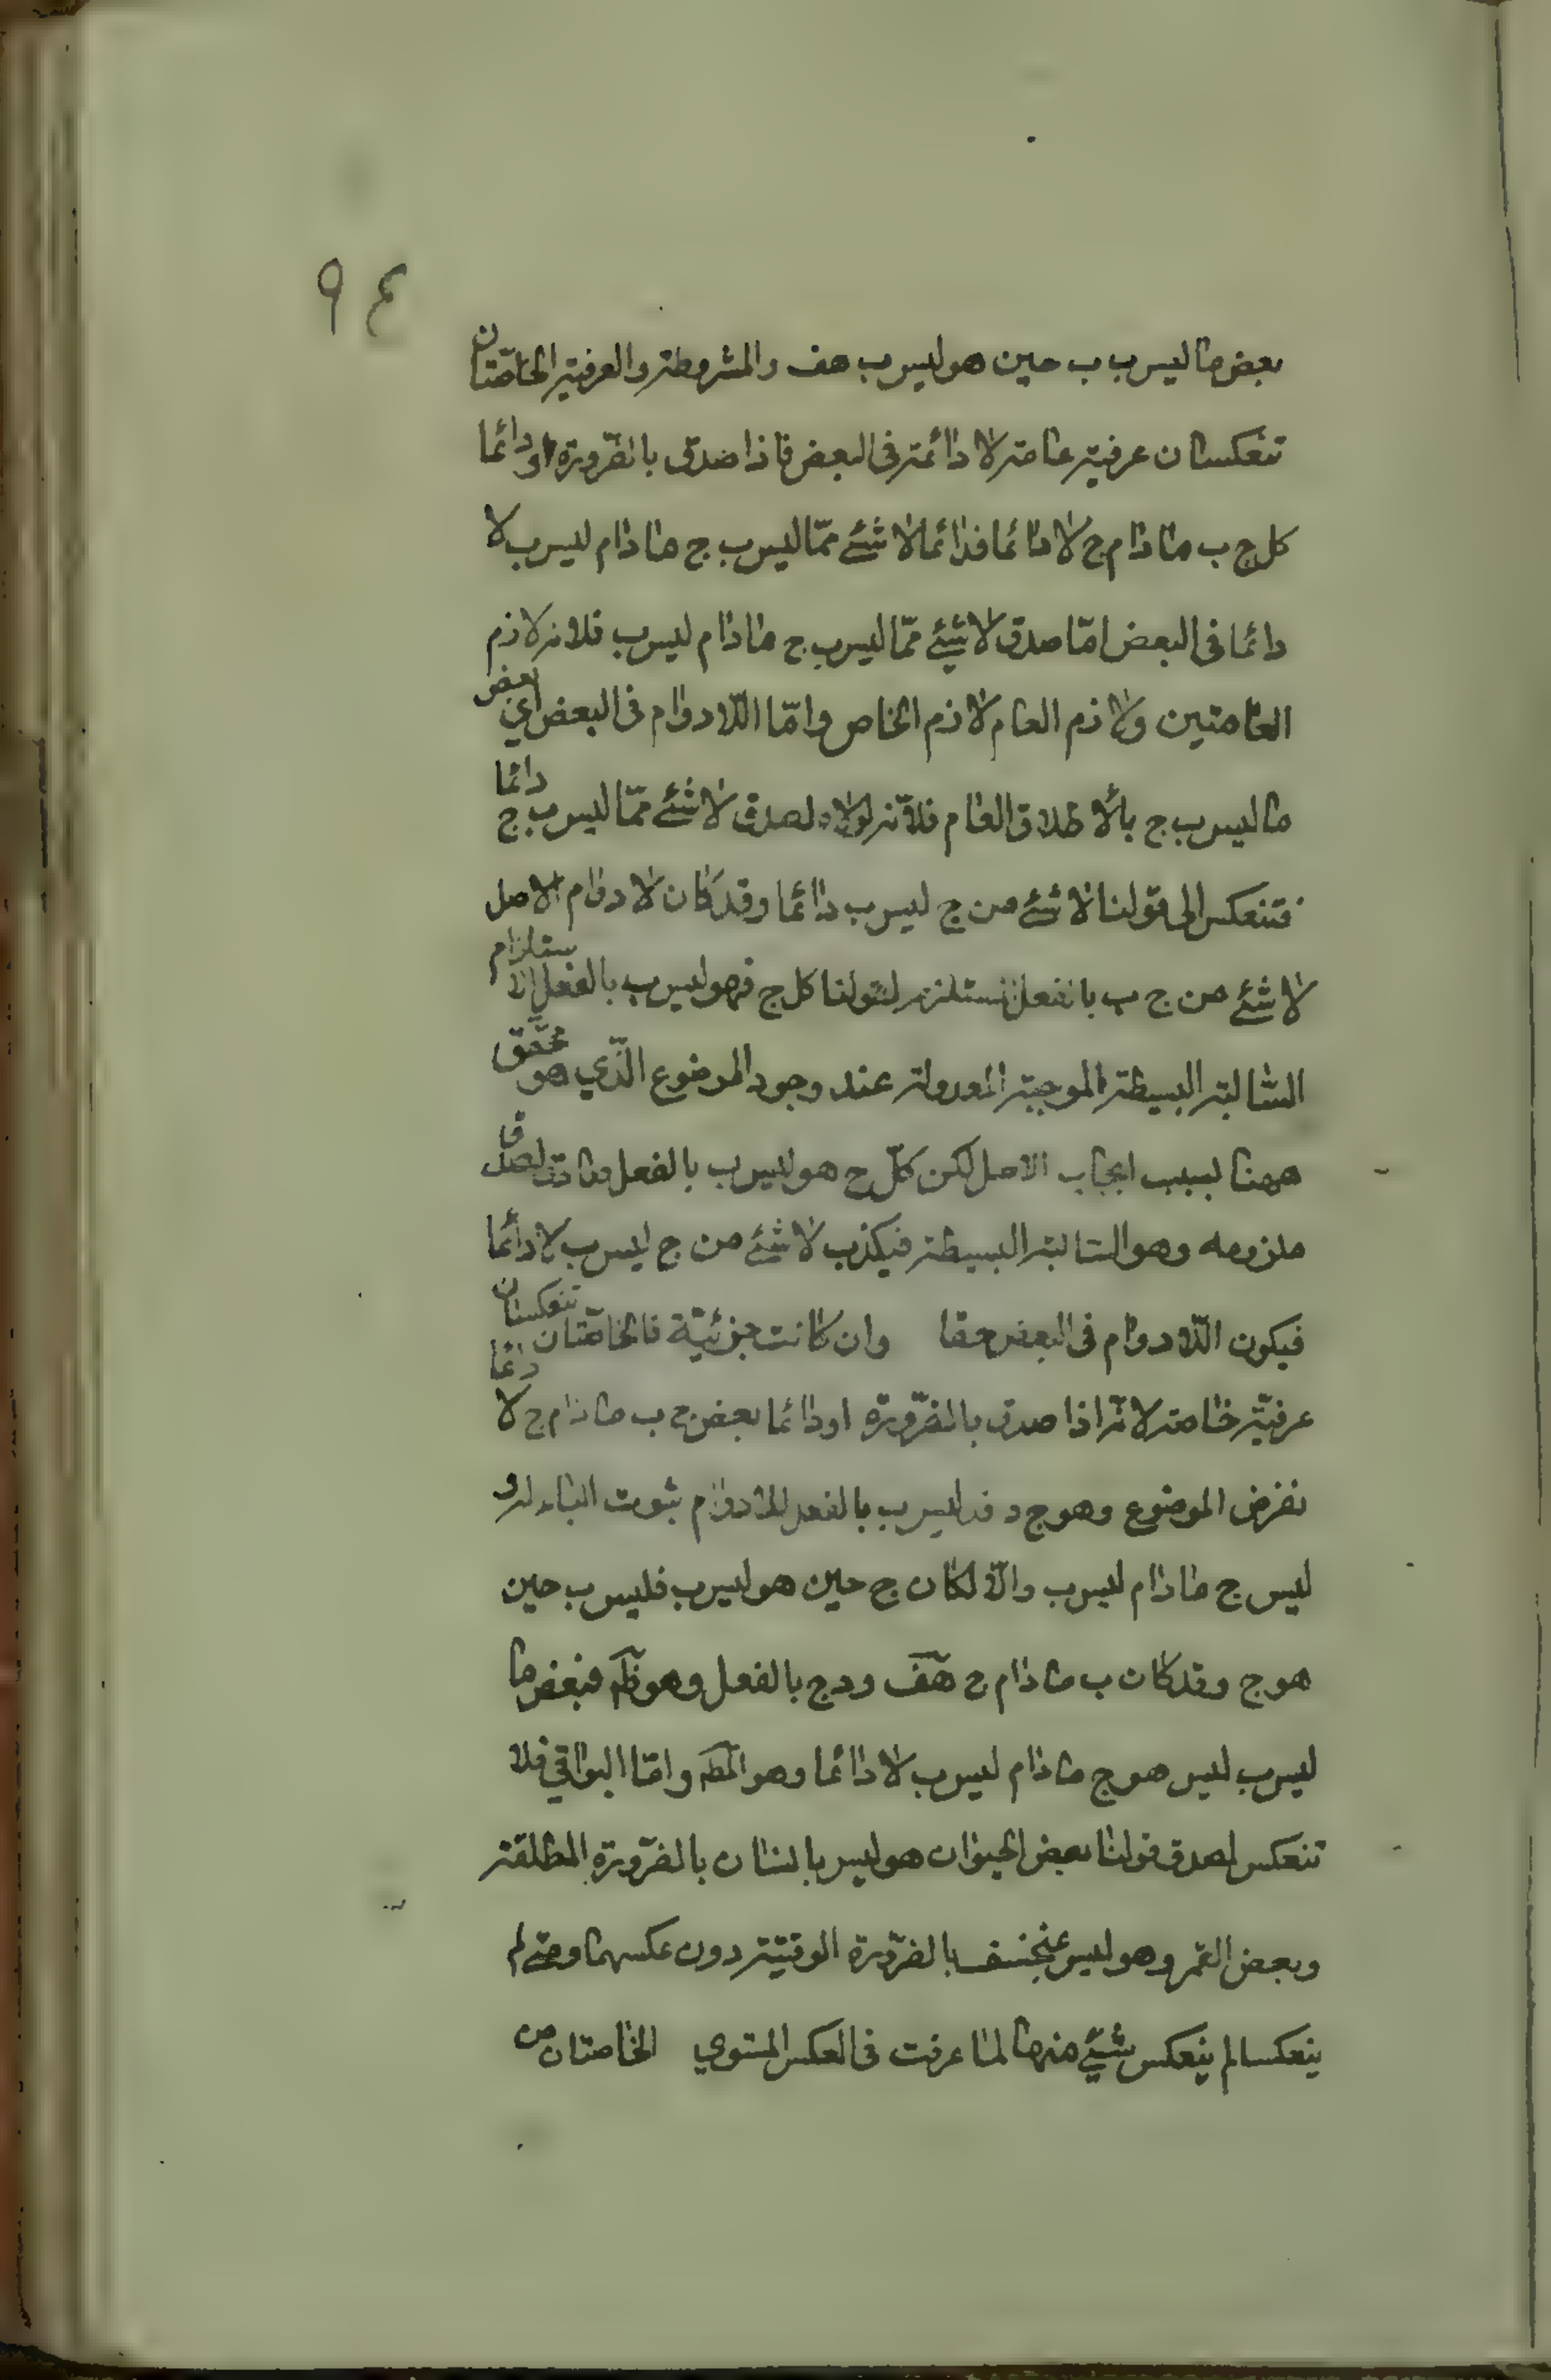 ٩٤
بعض ما ليس ب ب حين هو ليس ب هف والمشروطة والعرفية الخاصّتان
تنعكسان عرفية عامة لا دائمة فى البعض فاذا صدق بالضّرورة او دائما
كل ج ب ما دام ج لا دائما فدائما لا شئ ممّا ليس ب ج ما دام ليس ب لا
دائما فى البعض امّا صدق لا شئ ممّا ليس ب ج ما دام ليس ب فلانه لازم
العامتين ولازم العام لازم الخاص وامّا اللّادوام فى البعض اي بعض
ما ليس ب ج بالأطلاق العام فلانّه لولاه لصدق لا شئ ممّا ليس ب ج دائما
فتنعكس الى قولنا لا شئ من ج ليس ب دائما وقد كان لا دوام الاصل
لا شئ من ج ب بالفعل المستلزم لقولنا كل ج فهو ليس ب بالفعل يستلزام
السّالبة البسيطة الموجبة المعدولة عند وجود الموضوع الذّي هو محقّق
ههنا بسبب ايجاب الاصل لكن كلّ ج هو ليس ب بالفعل صادق لصدق
ملزومه وهو السّالبة البسيطة فيكذب لا شئ من ج ليس ب لا دائما
فيكون اللّادوام فى البعض حقا وان كانت جزئيّة فالخاصّتان تنعكسان
عرفيّة خاصة لانّه اذا صدق بالضّرورة او دائما بعض ج ب ما دام ج لا دائما
نفرض الموضوع وهو ج د فد ليس ب بالفعل للادوام ثبوت الباء له و
ليس ج ما دام ليس ب والّا لكان ج حين هو ليس ب فليس ب حين
هو ج وقد كان ب ما دام ج هف ود ج بالفعل وهو ظ فبعض ما
ليس ب ليس هو ج ما دام ليس ب لا دائما وهو المط وامّا البواقي فلا
تنعكس لصدق قولنا بعض الحيوان هو ليس بانسان بالضّرورة المطلقة
وبعض القمر وهو ليس بمنخسف بالضّرورة الوقتيّة دون عكسهما ومتى لم
ينعكسا لم ينعكس شئ منها لما عرفت فى العكس المستوي الخاصتان من